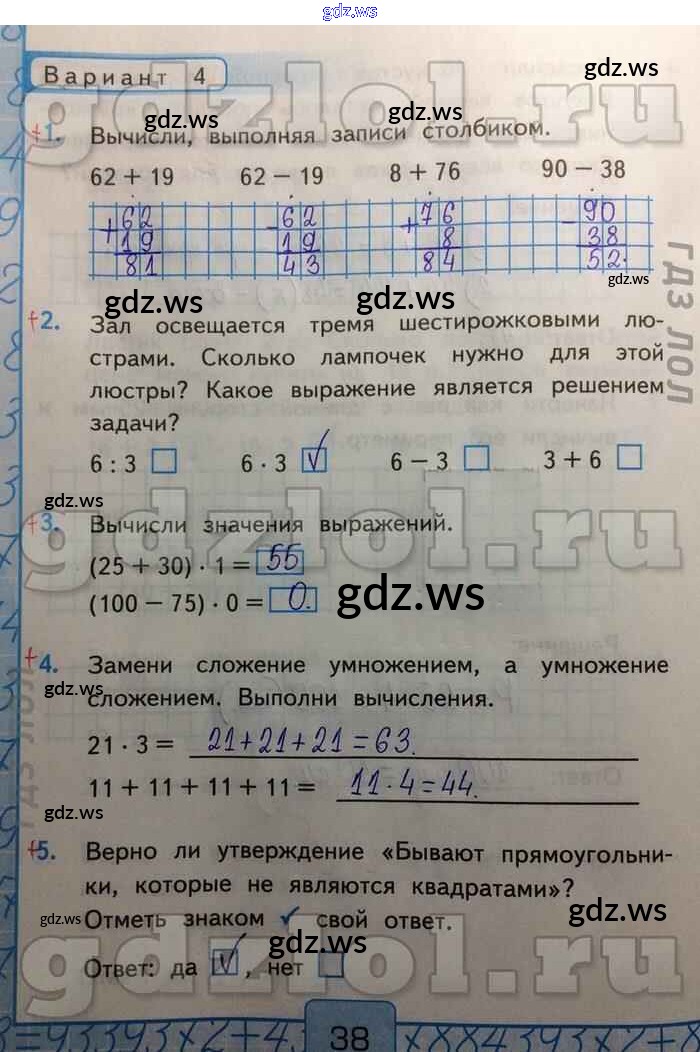 gdz.ws
Вариант 4
gdz.ws
gdzlol.ru
gdz.ws
+1. Вычисли, выполняя записи столбиком.
62 + 19 62 − 19 8 + 76 90 − 38
gdz.ws gdz.ws gdz.ws
+62 -62 +76 -90
19 19 8 38
81 43 84 52.
gdz.ws
gdz.ws gdz.ws
ГДЗ ЛОЛ
+2. Зал освещается тремя шестирожковыми лю-
страми. Сколько лампочек нужно для этой
люстры? Какое выражение является решением
задачи?
gdz.ws gdz.ws
6 : 3 6 · 3 V 6 − 3 3 + 6
gdz.ws
gdzlol.ru
+3. Вычисли значения выражений.
gdz.ws gdz.ws
(25 + 30) · 1 = 55
(100 − 75) · 0 = 0.
gdz.ws
+4. Замени сложение умножением, а умножение
сложением. Выполни вычисления.
gdz.ws
ГДЗ ЛОЛ
21 · 3 = 21+21+21=63.
11 + 11 + 11 + 11 = 11·4=44.
gdz.ws
+5. Верно ли утверждение «Бывают прямоугольни-
ки, которые не являются квадратами»?
Отметь знаком ✓ свой ответ.
gdz.ws gdz.ws
gdz.ws
Ответ: да V , нет
gdzlol.ru
38